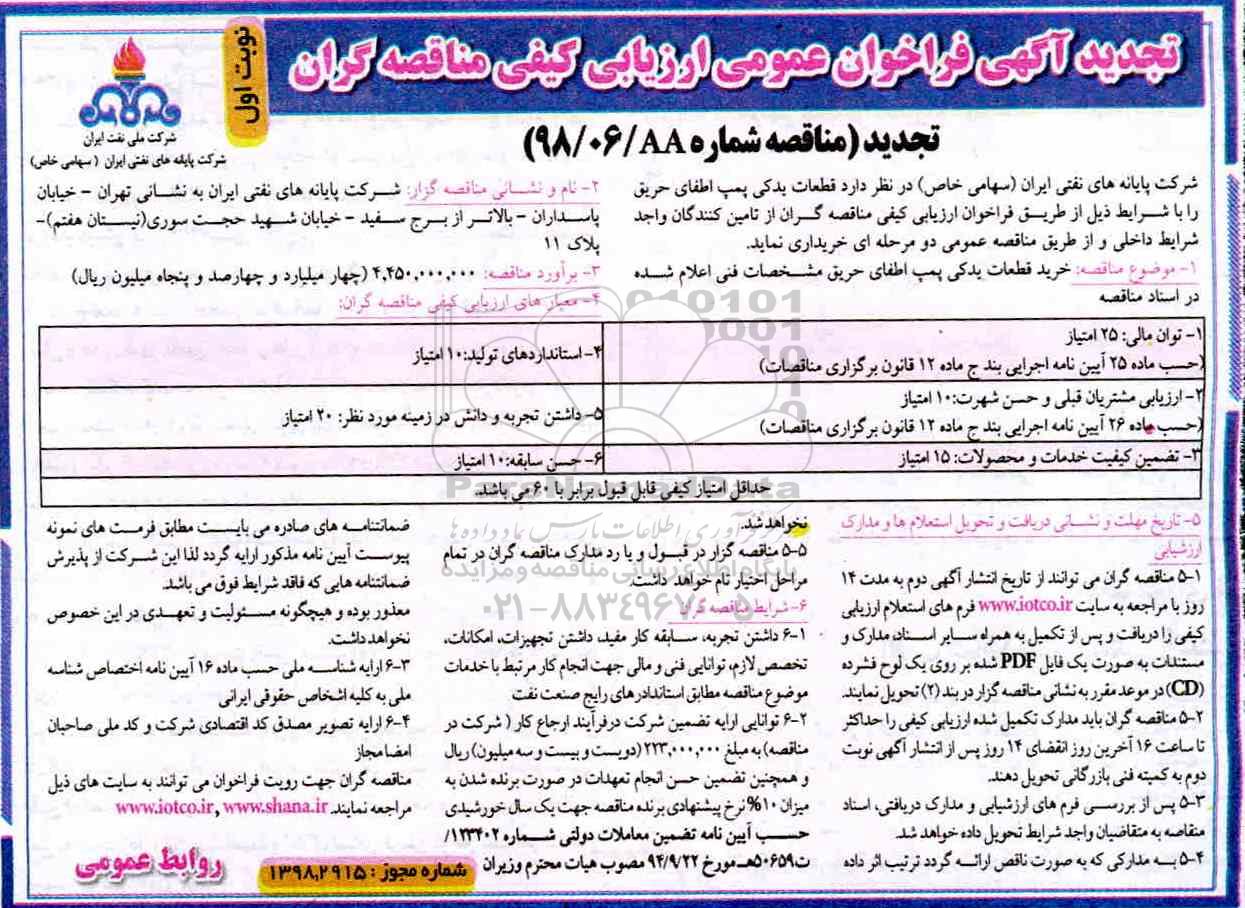 تجدید آگهی فراخوان عمومی ارزیابی کیفی مناقصه گران
نوبت اول
شرکت ملی نفت ایران
شرکت پایانه های نفتی ایران (سهامی خاص)
تجدید (مناقصه شماره ۹۸/۰۶/AA)
شرکت پایانه های نفتی ایران (سهامی خاص) در نظر دارد قطعات یدکی پمپ اطفای حریق
را با شرایط ذیل از طریق فراخوان ارزیابی کیفی مناقصه گران از تامین کنندگان واجد
شرایط داخلی و از طریق مناقصه عمومی دو مرحله ای خریداری نماید.
۱- موضوع مناقصه: خرید قطعات یدکی پمپ اطفای حریق مشخصات فنی اعلام شده
در اسناد مناقصه
۲- نام و نشانی مناقصه گزار: شرکت پایانه های نفتی ایران به نشانی تهران - خیابان
پاسداران - بالاتر از برج سفید - خیابان شهید حجت سوری(نیستان هفتم)-
پلاک ۱۱
۳- برآورد مناقصه: ۴,۴۵۰,۰۰۰,۰۰۰ (چهار میلیارد و چهارصد و پنجاه میلیون ریال)
۴- معیار های ارزیابی کیفی مناقصه گران:
۱- توان مالی: ۲۵ امتیاز
(حسب ماده ۲۵ آیین نامه اجرایی بند ج ماده ۱۲ قانون برگزاری مناقصات)
۴- استانداردهای تولید:۱۰ امتیاز
۲- ارزیابی مشتریان قبلی و حسن شهرت:۱۰ امتیاز
(حسب ماده ۲۶ آیین نامه اجرایی بند ج ماده ۱۲ قانون برگزاری مناقصات)
۵- داشتن تجربه و دانش در زمینه مورد نظر: ۲۰ امتیاز
۳- تضمین کیفیت خدمات و محصولات: ۱۵ امتیاز
۶- حسن سابقه:۱۰ امتیاز
حداقل امتیاز کیفی قابل قبول برابر با ۶۰ می باشد.
۵- تاریخ مهلت و نشانی دریافت و تحویل استعلام ها و مدارک
ارزشیابی
۵-۱ مناقصه گران می توانند از تاریخ انتشار آگهی دوم به مدت ۱۴
روز با مراجعه به سایت www.iotco.ir فرم های استعلام ارزیابی
کیفی را دریافت و پس از تکمیل به همراه سایر اسناد، مدارک و
مستندات به صورت یک فایل PDF شده بر روی یک لوح فشرده
(CD) در موعد مقرر به نشانی مناقصه گزار در بند (۲) تحویل نمایند.
۵-۲ مناقصه گران باید مدارک تکمیل شده ارزیابی کیفی را حداکثر
تا ساعت ۱۶ آخرین روز انقضای ۱۴ روز پس از انتشار آگهی نوبت
دوم به کمیته فنی بازرگانی تحویل دهند.
۵-۳ پس از بررسی فرم های ارزشیابی و مدارک دریافتی، اسناد
مناقصه به متقاضیان واجد شرایط تحویل داده خواهد شد.
۵-۴ به مدارکی که به صورت ناقص ارائه گردد ترتیب اثر داده
نخواهد شد.
۵-۵ مناقصه گزار در قبول و یا رد مدارک مناقصه گران در تمام
مراحل اختیار تام خواهد داشت.
۶- شرایط مناقصه گران
۶-۱ داشتن تجربه، سابقه کار مفید، داشتن تجهیزات، امکانات،
تخصص لازم، توانایی فنی و مالی جهت انجام کار مرتبط با خدمات
موضوع مناقصه مطابق استاندادرهای رایج صنعت نفت
۶-۲ توانایی ارایه تضمین شرکت درفرآیند ارجاع کار ( شرکت در
مناقصه) به مبلغ ۲۲۳,۰۰۰,۰۰۰ (دویست و بیست و سه میلیون) ریال
و همچنین تضمین حسن انجام تعهدات در صورت برنده شدن به
میزان ۱۰% نرخ پیشنهادی برنده مناقصه جهت یک سال خورشیدی
حسب آیین نامه تضمین معاملات دولتی شماره ۱۲۳۴۰۲/
ت۵۰۶۵۹هـ مورخ ۹۴/۹/۲۲ مصوب هیات محترم وزیران
ضمانتنامه های صادره می بایست مطابق فرمت های نمونه
پیوست آیین نامه مذکور ارایه گردد لذا این شرکت از پذیرش
ضمانتنامه هایی که فاقد شرایط فوق می باشد.
معذور بوده و هیچگونه مسئولیت و تعهدی در این خصوص
نخواهد داشت.
۶-۳ ارایه شناسه ملی حسب ماده ۱۶ آیین نامه اختصاص شناسه
ملی به کلیه اشخاص حقوقی ایرانی
۶-۴ ارایه تصویر مصدق کد اقتصادی شرکت و کد ملی صاحبان
امضا مجاز
مناقصه گران جهت رویت فراخوان می توانند به سایت های ذیل
مراجعه نمایند. www.iotco.ir, www.shana.ir
شماره مجوز : ۱۳۹۸,۲۹۱۵
روابط عمومی
ParsNamadData
مرکز فرآوری اطلاعات پارس نماد داده ها
پایگاه اطلاع رسانی مناقصه و مزایده
۰۲۱-۸۸۳۴۹۶۷۰-۵